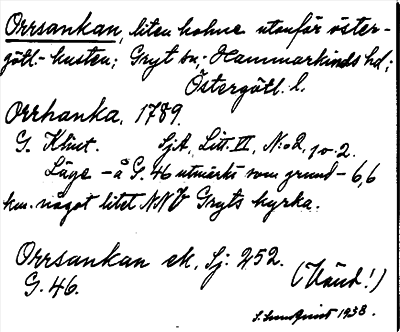 Orrsankan, liten holme utanför öster-
götl.- kusten; Gryt sn; Hammarkinds hd;
Östergötl. l.
Orrhanka, 1789.
G. Klint. SjA, Litt. VI, N:o 2, p. 2.
Läge – å G. 46 utmärkt som grund – 6,6
km. något litet NNV Gryts kyrka.
Orrsankan ek, Sj: 252.
G. 46. (Vänd!)
S. Lundquist 1938.